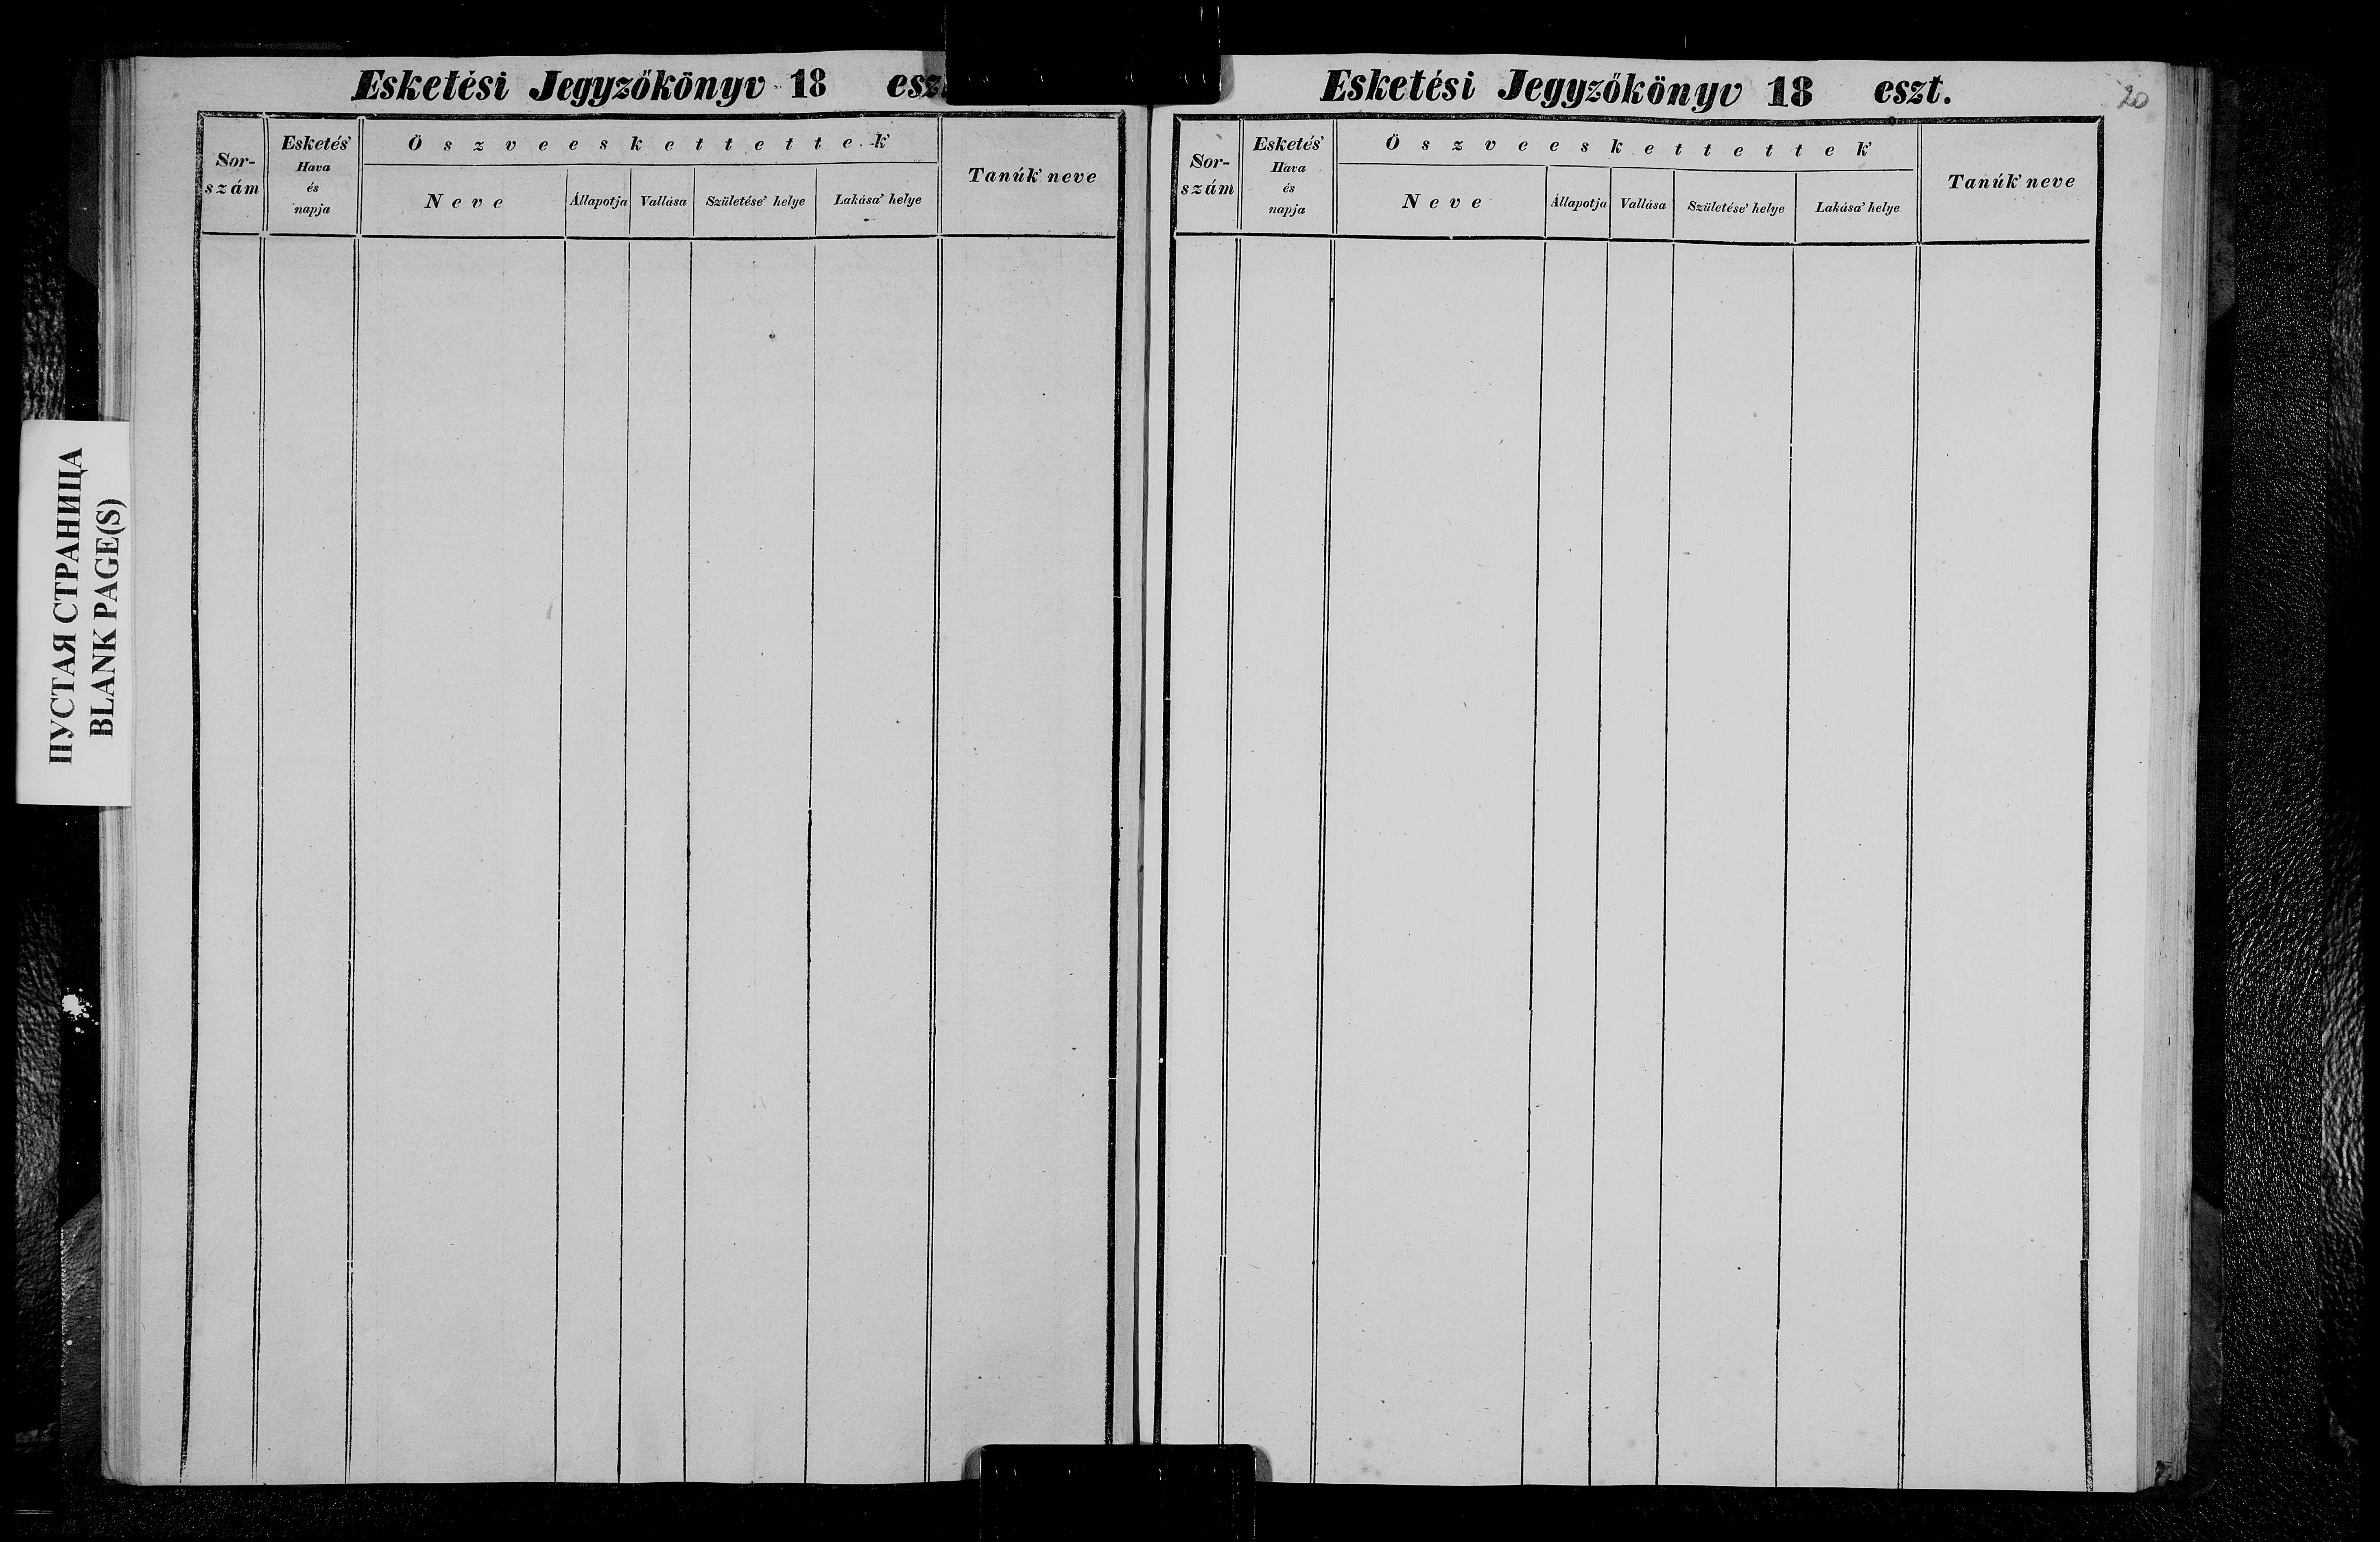 ПУСТАЯ СТРАНИЦА
BLANK PAGE(S)
Esketési Jegyzőkönyv 18 esz
Sor-
szám
Esketés'
Hava
és
napja
Öszveeskettettek'
Neve
Állapotja
Vallása
Születése' helye
Lakása' helye
Tanúk' neve
Esketési Jegyzőkönyv 18 eszt.
20
Sor-
szám
Esketés'
Hava
és
napja
Öszveeskettettek'
Neve
Állapotja
Vallása
Születése' helye
Lakása' helye
Tanúk' neve